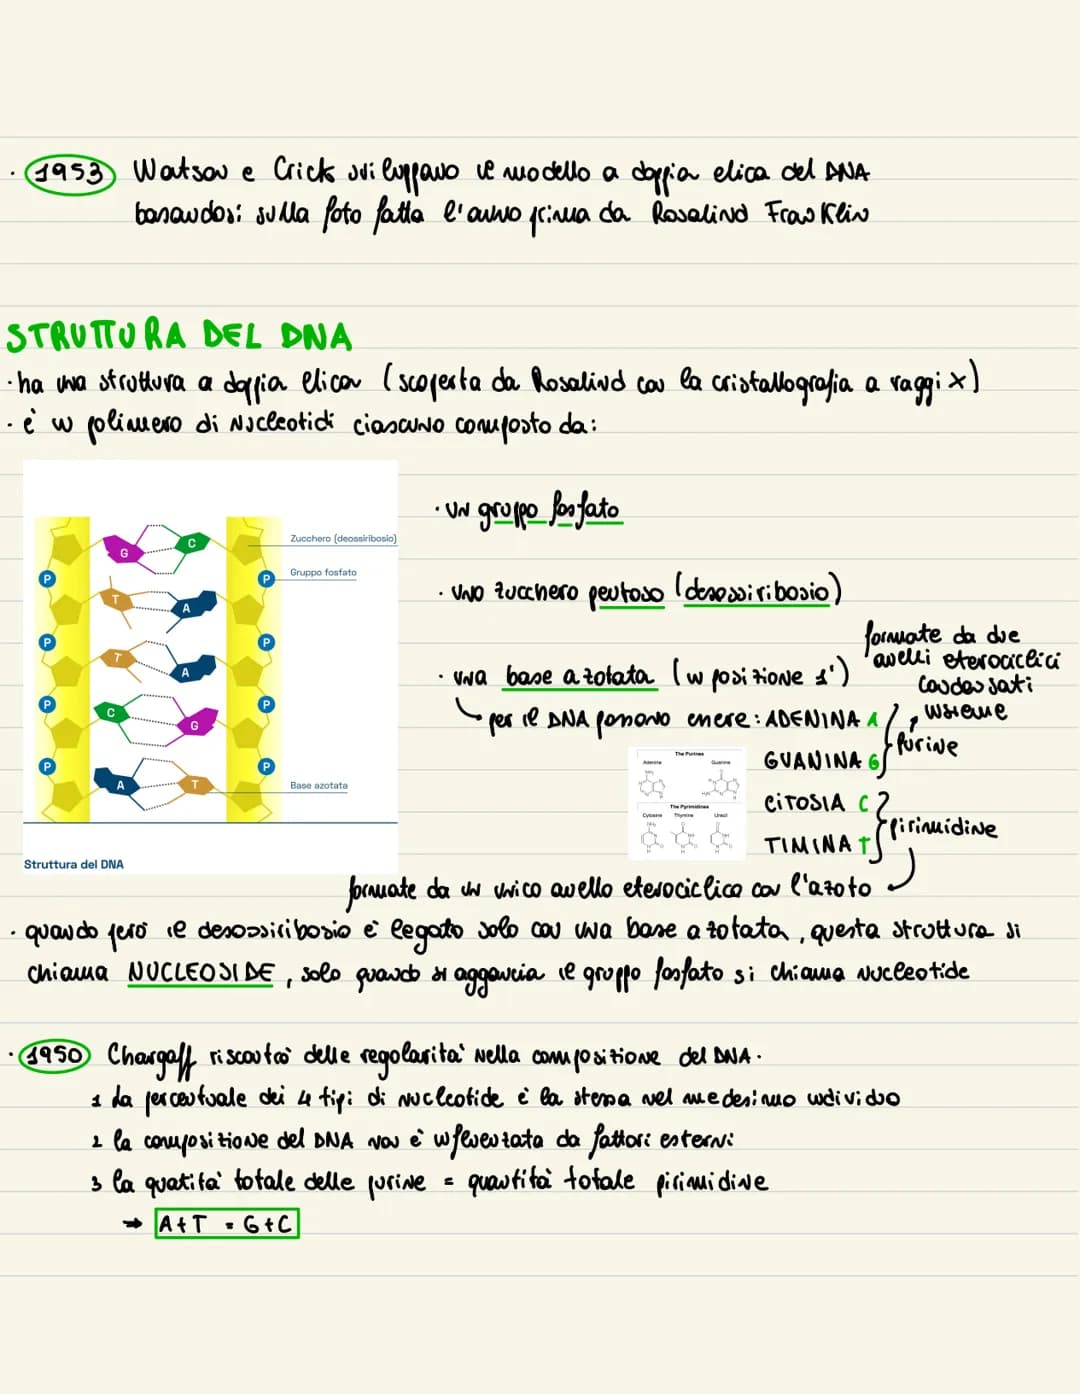 · 1953 Watson e Crick sviluppano il modello a doppia elica del DNA
basandosi sulla foto fatta l'anno prima da Rosalind Franklin
STRUTTURA DEL DNA
· ha una struttura a doppia elica (scoperta da Rosalind con la cristallografia a raggi x)
· è un polimero di nucleotidi ciascuno composto da:
· un gruppo fosfato
· uno zucchero pentoso (desossiribosio)
· una base azotata (in posizione 1')
formate da due
anelli eterociclici
condensati
insieme
per il DNA possono essere: ADENINA A
GUANINA G
purine
CITOSIA C
TIMINA T
pirimidine
formate da un unico anello eterociclico con l'azoto
G C
Zucchero (deossiribosio)
P P
Gruppo fosfato
T A
P P
T A
P P
C G
P P
A T
Base azotata
Struttura del DNA
The Purines
Adenine Guanine
The Pyrimidines
Cytosine Thymine Uracil
· quando però il desossiribosio è legato solo con una base azotata, questa struttura si
chiama NUCLEOSIDE, solo quando si aggancia il gruppo fosfato si chiama nucleotide
· 1950 Chargaff riscontrò delle regolarità nella composizione del DNA.
1 La percentuale dei 4 tipi di nucleotide è la stessa nel medesimo individuo
2 la composizione del DNA non è influenzata da fattori esterni
3 la quatità totale delle purine = quantità totale pirimidine
→ A+T = G+C